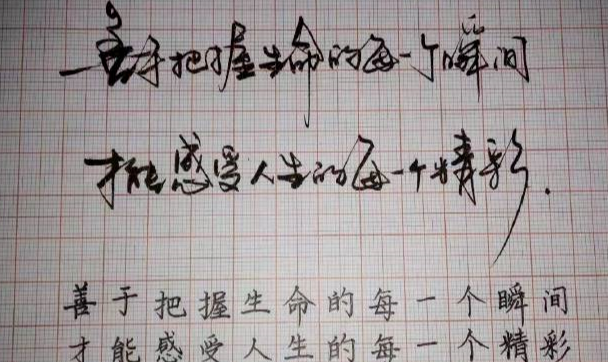 善于把握生命的每一个瞬间
才能感受人生的每一个精彩.
善于把握生命的每一个瞬间
才能感受人生的每一个精彩